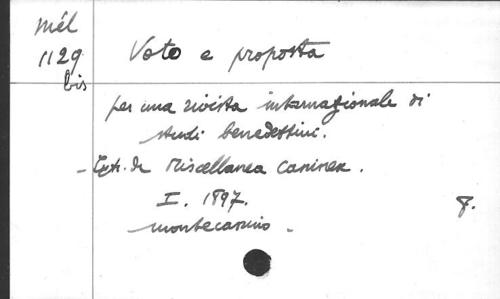 Mél
1129
bis
Voto e proposta
per una rivista internazionale di
studi benedettini.
- Extr. de Miscellanea Casinen.
I. 1897.
Montecassino.
8.